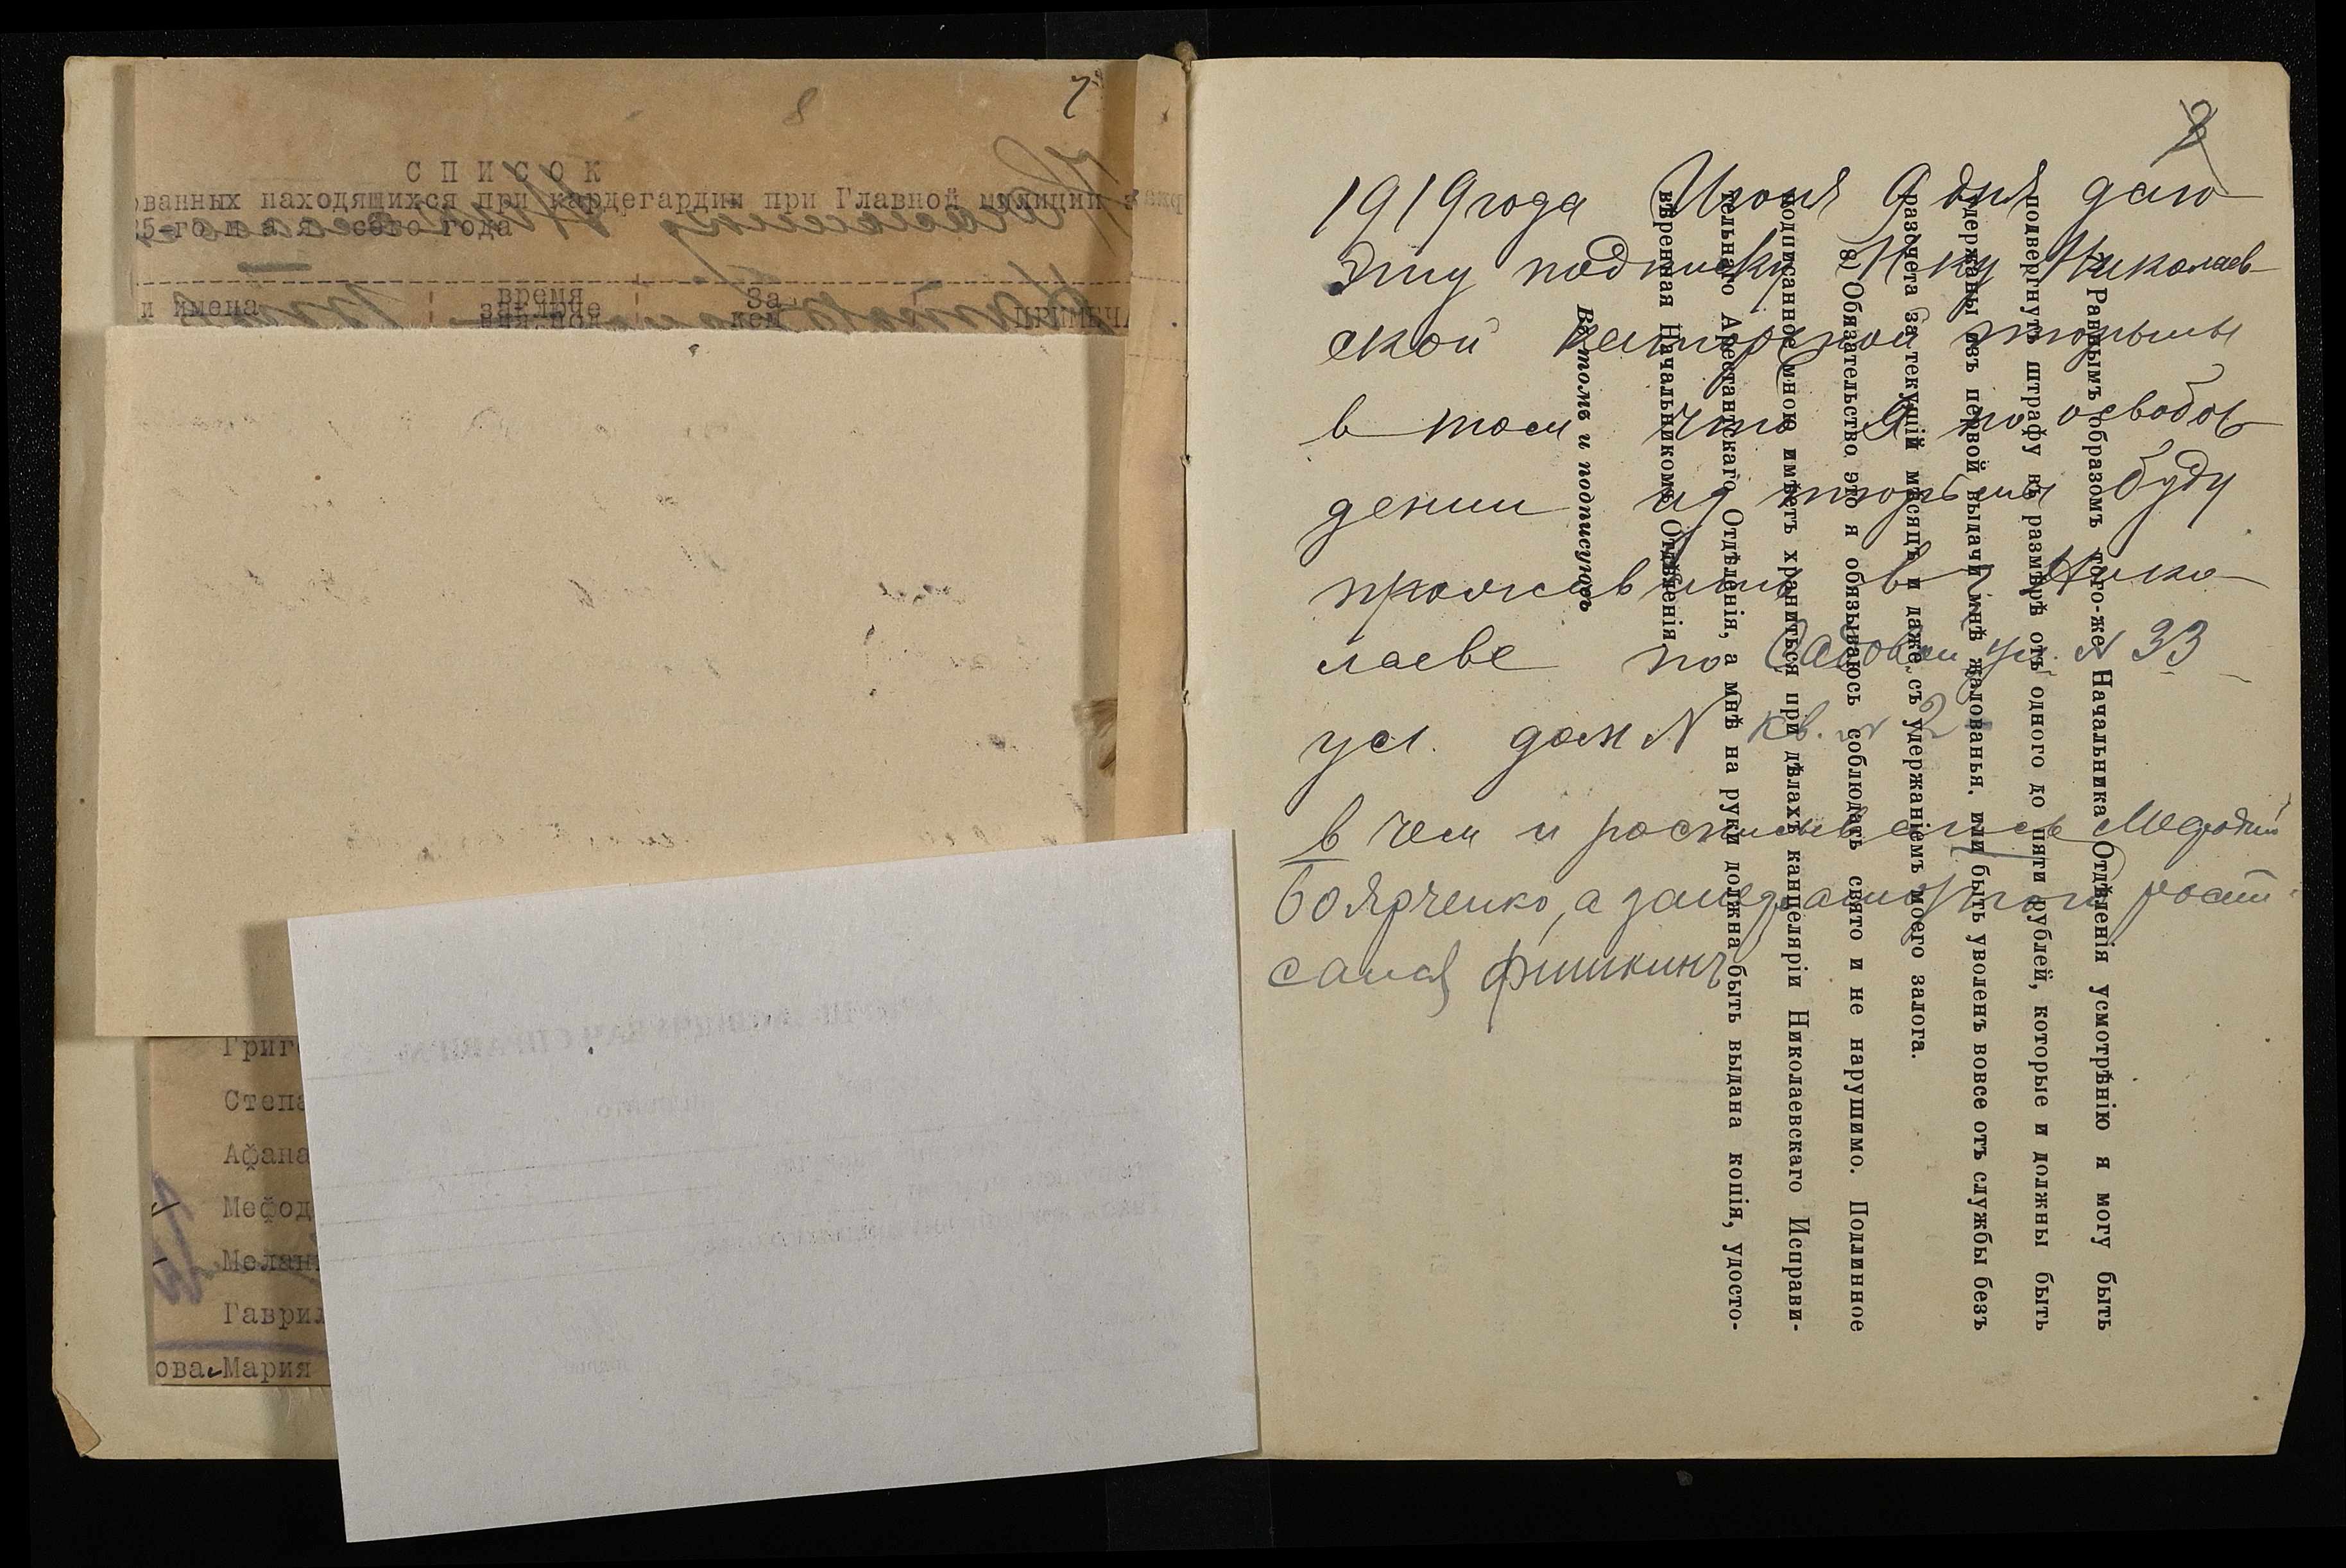 7
8
СПИСОК
ованных находящихся при кардегардии при Главной милиции
25-го мая сего года
и имена
время
заключе
За
кем
ПРИМЕЧА
Григо
Степа
Афана
Мефод
Мелан
Гаврил
ова Мария
8
1919 года Июня 9 дня даю
эту подписку Н-ку Николаев-
ской каторжной тюрьмы
в том что я по освобож
дении из тюрьмы буду
проживать в г Нико-
лаеве по Садовой ул. N 33
ул. дом N кв. N 2
в чем и росписываюсь Мефодий
Боярченко, а занеграмотного роспи-
сался Фишкинъ
7) Равнымъ образомъ того-же Начальника Отдѣленія усмотрѣнію я могу быть
подвергнутъ штрафу въ размѣрѣ отъ одного до пяти рублей, которые и должны быть
удержаны изъ первой выдачи мнѣ жалованья, или быть уволенъ вовсе отъ службы безъ
разсчета за текущій мѣсяцъ и даже съ удержаніемъ моего залога.
8) Обязательство это я обязываюсь соблюдать свято и не нарушимо. Подлинное
подписанное мною имѣетъ храниться при дѣлахъ канцеляріи Николаевскаго Исправи-
тельнаго Арестантскаго Отдѣленія, а мнѣ на руки должна быть выдана копія, удосто-
вѣренная Начальникомъ Отдѣленія
Въ томъ и подписуюсь